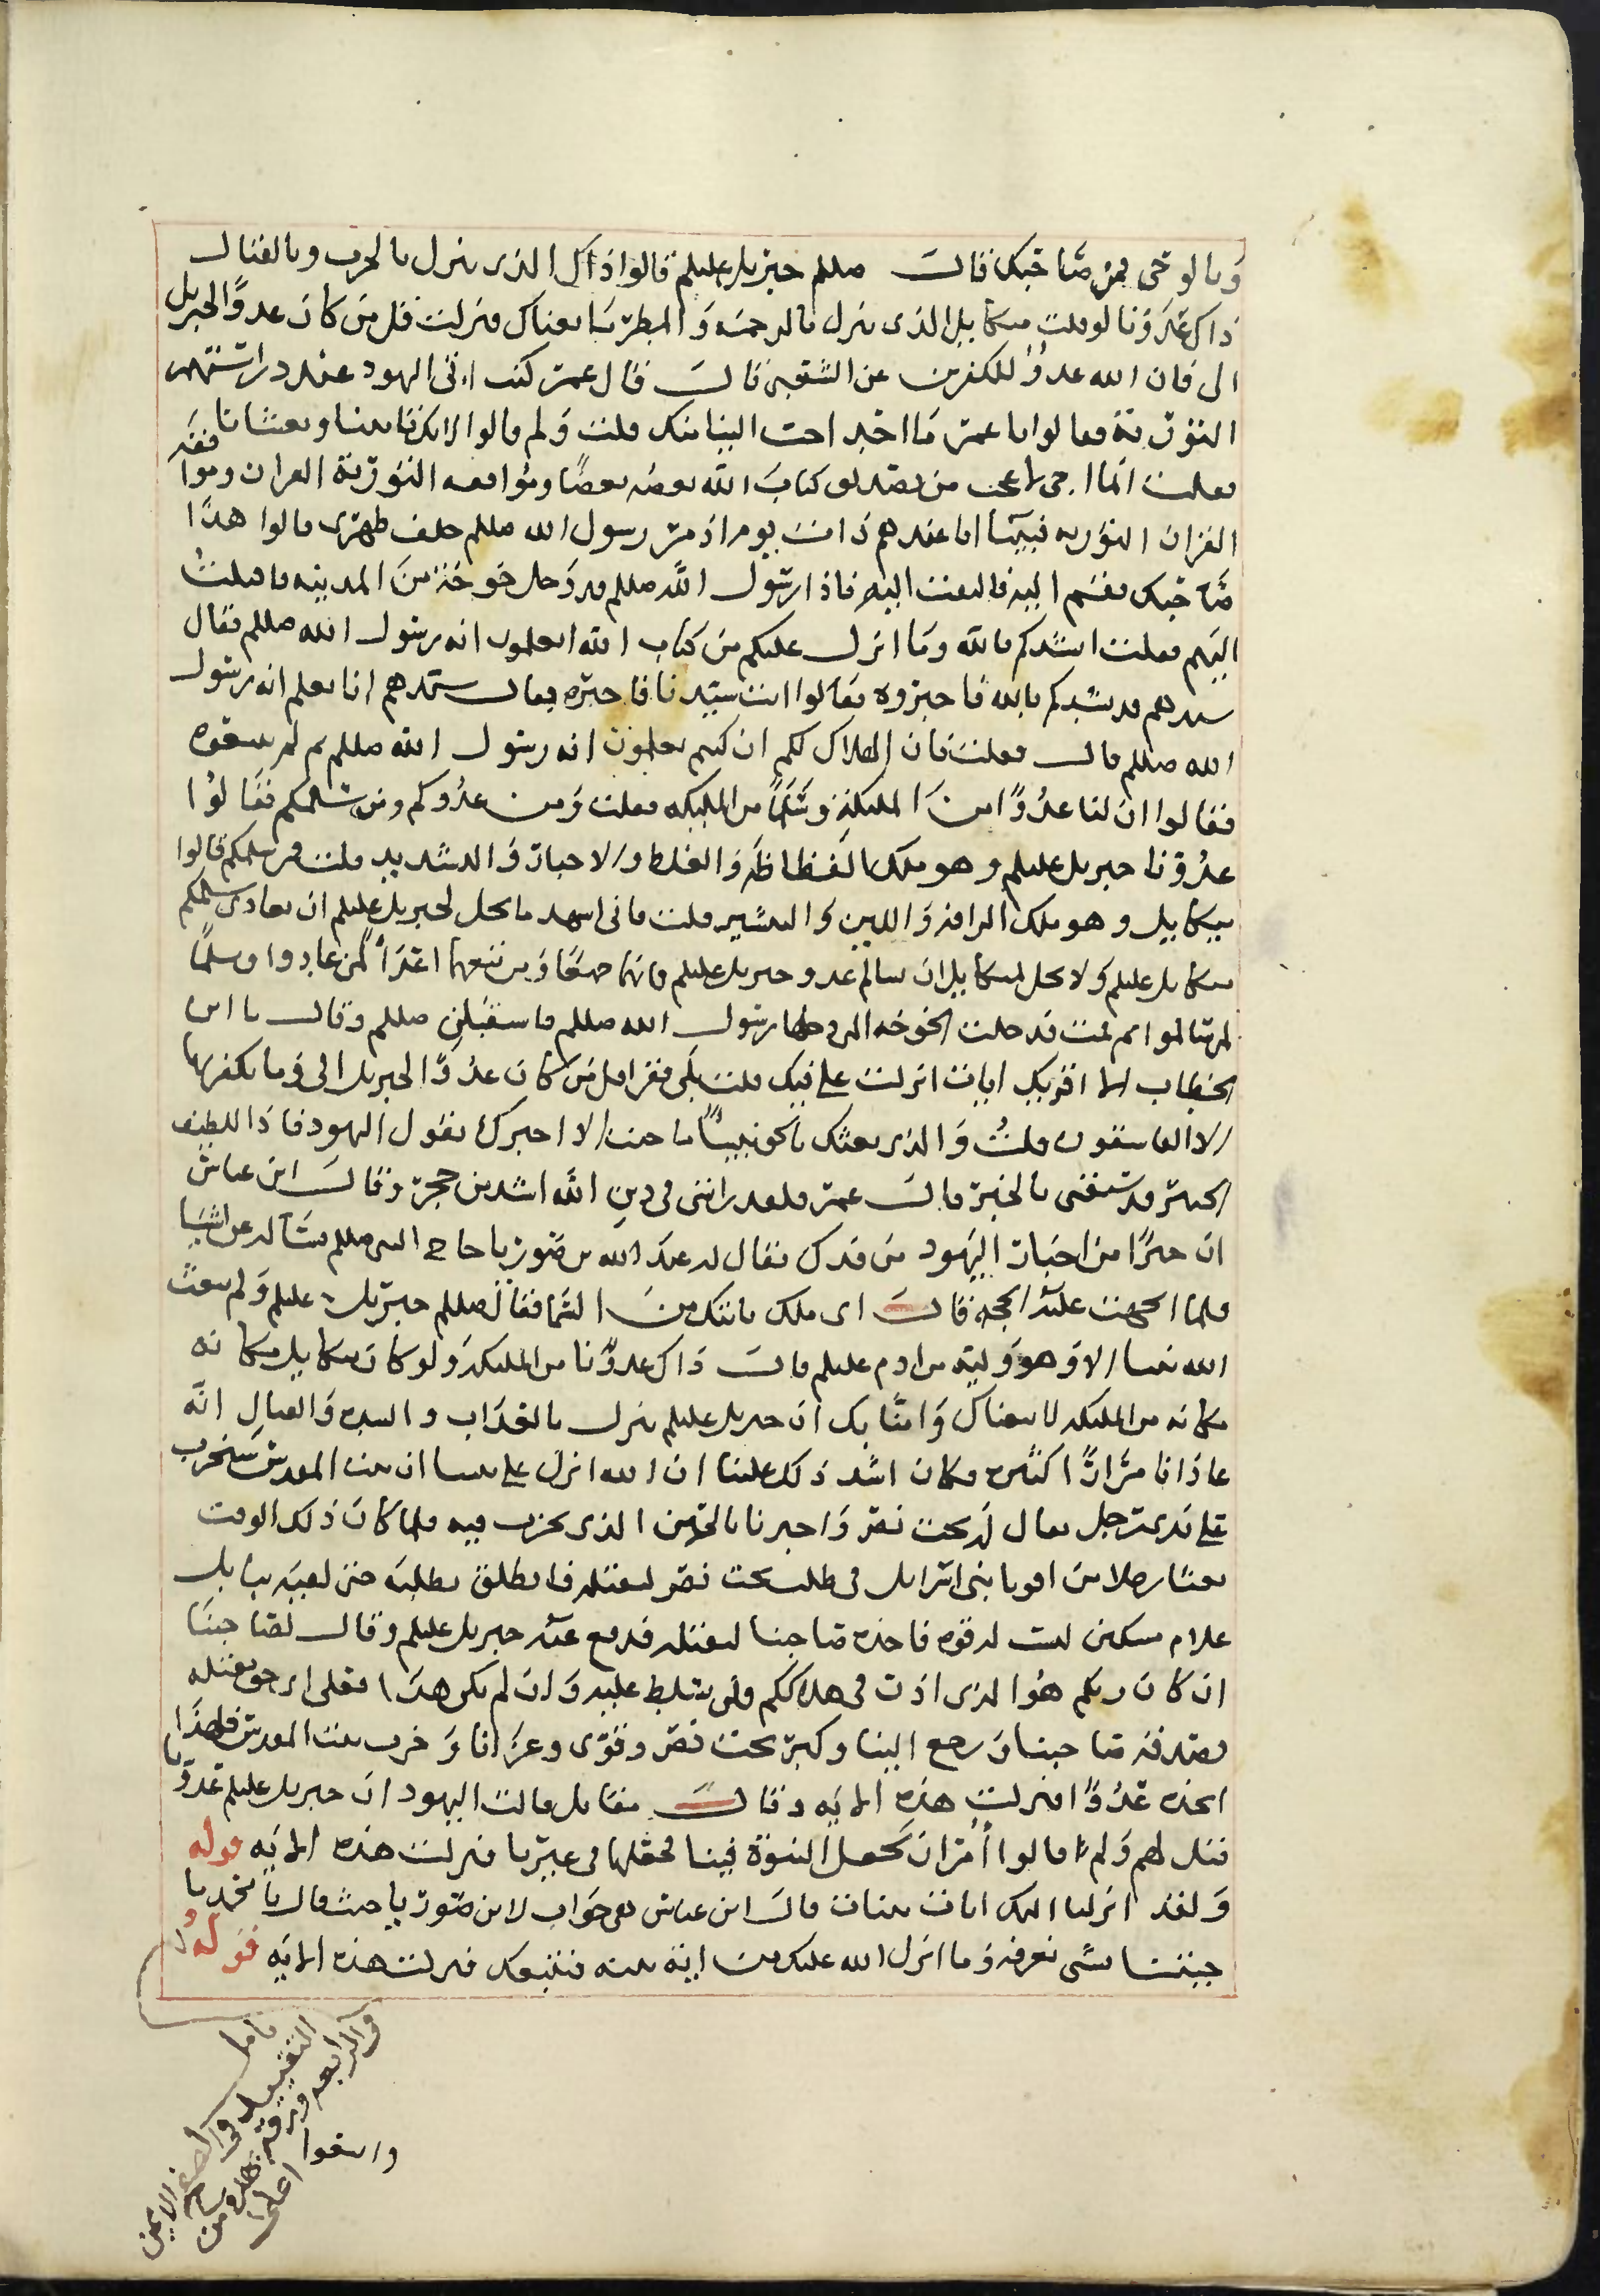 وبالوحي فمن صاحبك قال صللم جبريل عليلم قالوا ذاك الذى ينزل بالحرب وبالقتال
ذاك عدونا لو قلت ميكاييل الذى ينزل بالرحمه والمطر تابعناك فنزلت قل من كان عدوًّا لجبريل
الى فان الله عدوٌ للكفرين عن الشعبي قال قال عمر كنت اتى اليهود عند دراستهم
التورية فقالوا يا عمر ما احد احب الينا منك قلت ولم قالوا لانك تاتينا وتغشانا
فقلت انما اجى لاعجب من تصديق كتاب الله بعضه بعضًا وموافقه التورية القران وموافقه
القران التوريه فبينا انا عندهم ذات يوم اذ مر رسول الله صللم خلف ظهرى قالوا هذا
صاحبك فقم اليه فالتفت اليه فاذا رسول الله صللم قد دخل خوخة من المدينه فاقبلت
اليهم فقلت انشدكم بالله وما انزل عليكم من كتاب الله اتعلمون انه رسول الله صللم فقال
سيدهم قد نشدكم بالله فاخبروه فقالوا انت سيدنا فاخبره فقال سيدهم انا نعلم انه رسول
الله صللم قال فقلت فان الهلاك لكم ان كنتم تعلمون انه رسول الله صللم ثم لم تتبعوه
فقالوا ان لنا عدوًّا من المليكة وسلمًا من المليكه فقلت ومن عدوكم ومن سلمكم فقالوا
عدونا جبريل عليلم وهو ملك الفظاظه والغلظ والاصار والتشديد قلت ومن سلمكم قالوا
ميكاييل وهو ملك الرافه واللين والتيسير قلت فانى اشهد ما يحل لجبريل عليلم ان يعادى سلمكم
ميكايل عليلم ولا يحل لميكاييل ان سالم عدو جبريل عليلم فانهما جميعًا ومن معهما اعداً لمن عادوا وسلمًا
لمن سالموا ثم قمت فدخلت الخوخه التى دخلها رسول الله صللم فاستقبلنى صللم وقال يا ابن
الخطاب الا اقريك ايات انزلت علي قبل قلت بلى فقرا قل من كان عدوًّا لجبريل الى وما يكفر بها
الا الفاسقون قلت والذى بعثك بالحق نبيًّا ما جيت الا اخبرك بقول اليهود فاذا اللطيف
الخبير قد سبقنى بالخبر قال عمر فلقد راتنى فى دين الله اشد من حجر وقال ابن عباس
ان حبرًا من احبار اليهود من فدك يقال له عبد الله بن صوريا حاج النبى صللم فساله عن اشيا
فلما اتجهت عليه الحجه قال اى ملك ياتيك من السما فقال صللم جبريل عليلم ولم يبعث
الله نبيا الا وهو وليه من ادم عليلم قال ذاك عدونا من المليكه ولو كان ميكايل مكانه
مكانه من المليكه لا تبعناك وامنا بك ان جبريل عليلم ينزل بالعذاب والشده والقتال انه
عادانا مرارًا كثيره وكان اشد ذلك علينا ان الله انزل على نبينا ان بيت المقدس سيخرب
على يدى رجل يقال له بخت نصر واخبرنا بالحين الذى يخرب فيه فلما كان ذلك الوقت
بعثنا رجلا من اقويا بنى اسرايل فى طلب بخت نصر ليقتله فانطلق يطلبه حتى لقيه ببابل
غلام مسكين ليست له قوه فاخذه صاحبنا ليقتله فدفع عنه جبريل عليلم وقال لصاحبنا
ان كان ربكم هو الذى اذن فى هلاككم فلن تسلط عليه وان لم يكن هذا فعلى اى حق تقتله
فصدقه صاحبنا ورجع الينا وكبر بخت نصر وقوى وغزانا وخرب بيت المقدس فلهذا
نتخذه عدوًّا فنزلت هذه الايه وقال مقاتل قالت اليهود ان جبريل عليلم عدونا
فقيل لهم ولم قالوا أُمر ان يجعل النبوة فينا فجعلها فى غيرنا فنزلت هذه الايه قوله
ولقد انزلنا اليك ايات بينات قال ابن عباس هى جواب لابن صوريا حيث قال يا محمد ما
جيتنا بشى نعرفه وما انزل الله عليك من اية بينه فنتبعك فنزلت هذه الايه قولهُ
واتبعوا
تامل
التقييد فى الصفح الايمن
والرابعه ورقه
اعلى